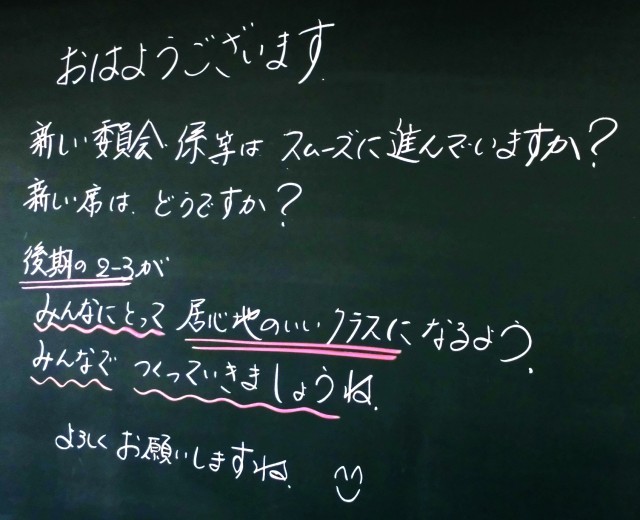 おはようございます.
新しい委員会・係等は スムーズに進んでいますか?
新い席は どうですか?
後期の2-3が
みんなにとって 居心地のいいクラスに なるよう.
みんなで つくっていきましょうね.
よろしく お願いしますね.